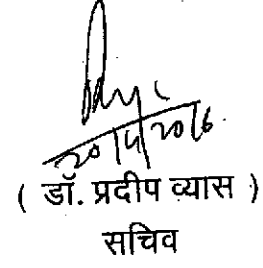 20/4/2016.
( डॉ. प्रदीप व्यास )
सचिव